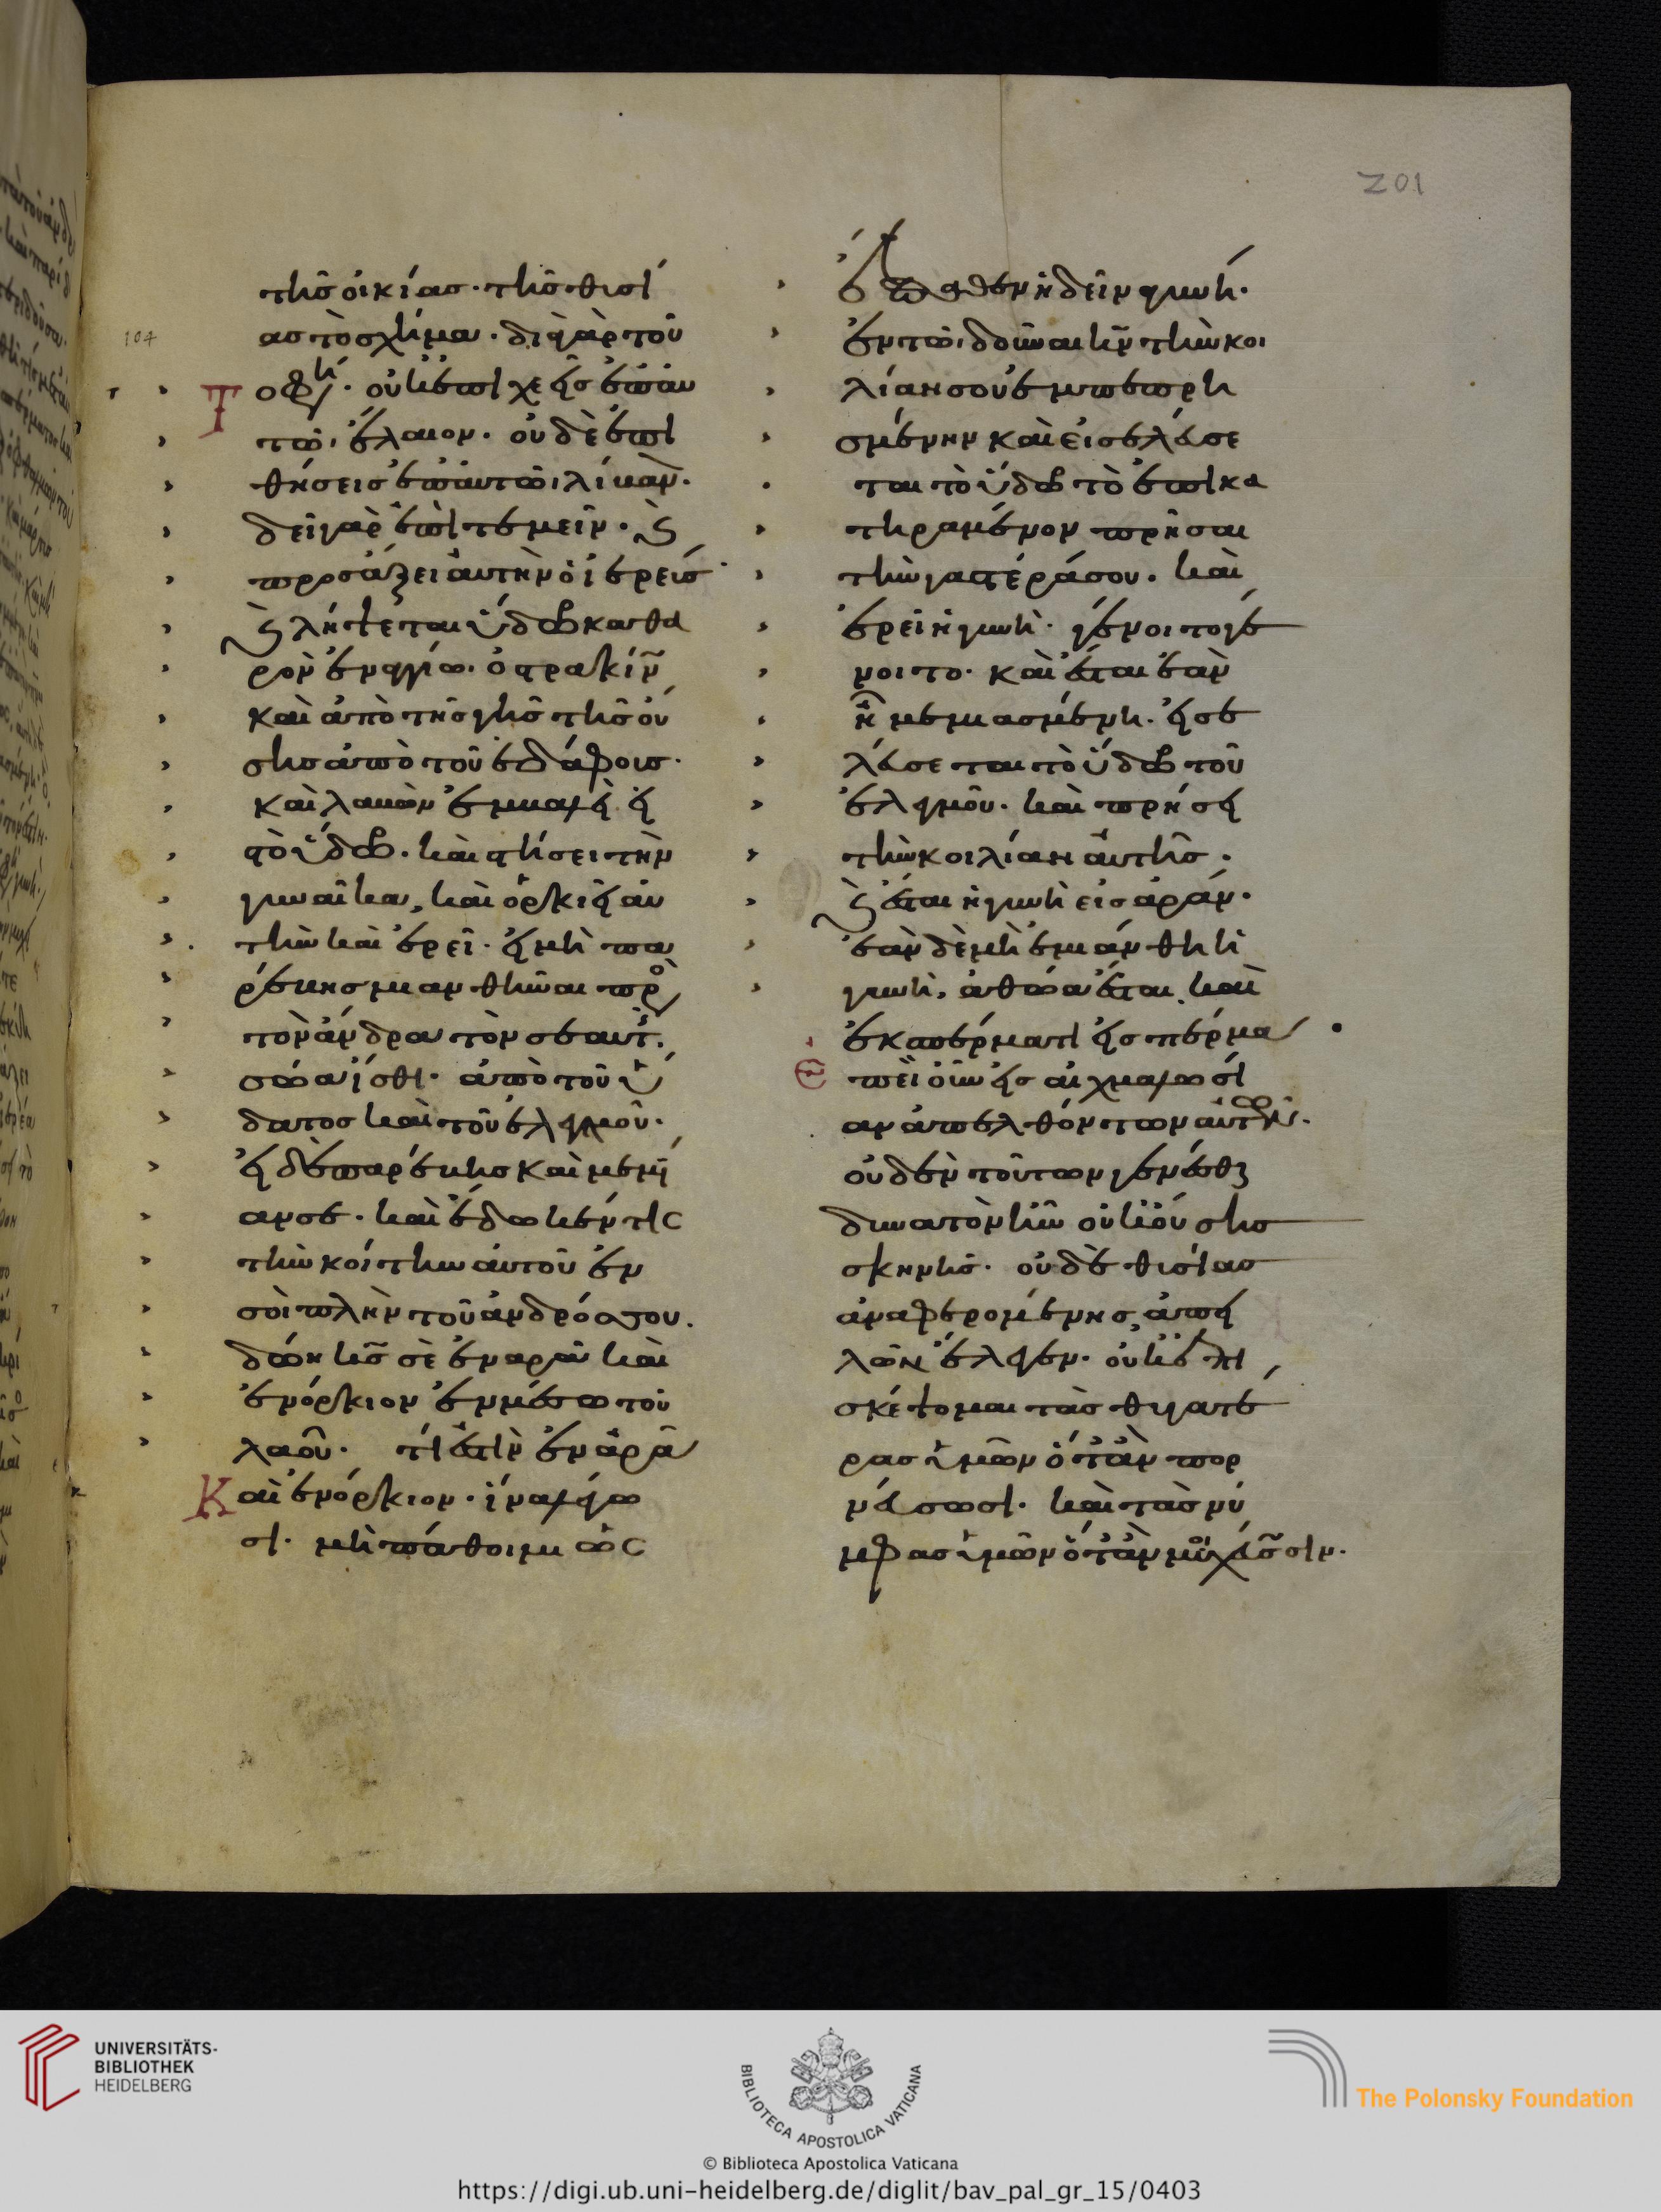 201
τῆς οἰκίας. τῆς θυσί
ας τὸ σχῆμα. διὰ γὰρ τοῦ
104
το φη. οὐκ ἐπιχεεῖς ἐπ' αυ
τῶι ἔλαιον. οὐδὲ ἐπι
θήσεις ἐπ' αυτῶι λίβανον.
προσάξει αυτὴν ὁ ἱερεὺς
λήψεται ὕδωρ καθα
ρὸν ἐν ἀγγίω ὀστρακίνω
καὶ ἀπὸ τῆς γῆς τῆς οὔ
σης ἀπὸ τοῦ ἐδάφους.
καὶ λαβὼν ἐμβαλεῖ εἰς
τὸ ὕδωρ. καὶ στήσει τὴν
γυναῖκα, καὶ ὁρκιεῖ αυ
τὴν καὶ ἐρεῖ. εἰ μὴ πα
ρέβης μιανθῆναι πρὸς
τὸν ἄνδρα τὸν σεαυτῆς.
ἀθῶα ἴσθι. ἀπὸ τοῦ ὕ
δατος καὶ τοῦ ἐλεγμοῦ.
εἰ δὲ παρέβης καὶ μεμί
ανσε. καὶ ἔδωκέν τις
τὴν κοίτην αυτοῦ ἐν
σοὶ πλὴν τοῦ ἀνδρός σου.
δώη κς σὲ ἐν ἀρᾶ καὶ
ἐνόρκιον ἐν μέσω τοῦ
λαοῦ. τί ἐστὶν ἐν ἀρᾶ
Καὶ ἐνόρκιον. ἵνα λέγω
σι. μὴ πάθοιμι ὡς
ἔπαθεν ἡ δεῖν γυνή.
ἐν τῶι δοῦναι κν τὴν κοι
λίαν σου ἐμπεπρη
σμένην καὶ εἰσελεύσε
ται τὸ ὕδωρ τὸ ἐπικα
τηραμένον πρῆσαι
τὴν γαστέρά σου. καὶ
ἐρεῖ ἡ γυνή. γένοιτο γέ
νοιτο. καὶ ἔσται ἐὰν
ἦ μεμιασμένη. εἰσε
λεύσεται τὸ ὕδωρ τοῦ
ἐλεγμοῦ. καὶ πρήσει
τὴν κοιλίαν αὐτῆς.
ἔσται ἡ γυνὴ εἰς ἀράν.
ἐὰν δὲ μὴ ἐμιάνθη ἡ
γυνή, ἀθῶα ἔσται, καὶ
ἐκσπερματιεῖ σπέρμα
Επεὶ οὖν εἰς αἰχμαλωσί
αν ἀπελθόντων αὐτῶν.
οὐδὲν τούτων γενέσθαι
δυνατὸν ἦν οὐκ οὔσης
σκηνῆς. οὐδὲ θυσίας
ἀναφερομένης, ἀπει
λῶν ἔλεγεν. οὐκ ἐπι
σκέψομαι τὰς θυγατέ
ρας ὑμῶν ὅταν πορ
νεύσωσι. καὶ τὰς νύ
μφας ὑμῶν ὅταν μοιχεύσωσιν.
UNIVERSITÄTS-
BIBLIOTHEK
HEIDELBERG
BIBLIOTECA APOSTOLICA VATICANA
The Polonsky Foundation
© Biblioteca Apostolica Vaticana
https://digi.ub.uni-heidelberg.de/diglit/bav_pal_gr_15/0403